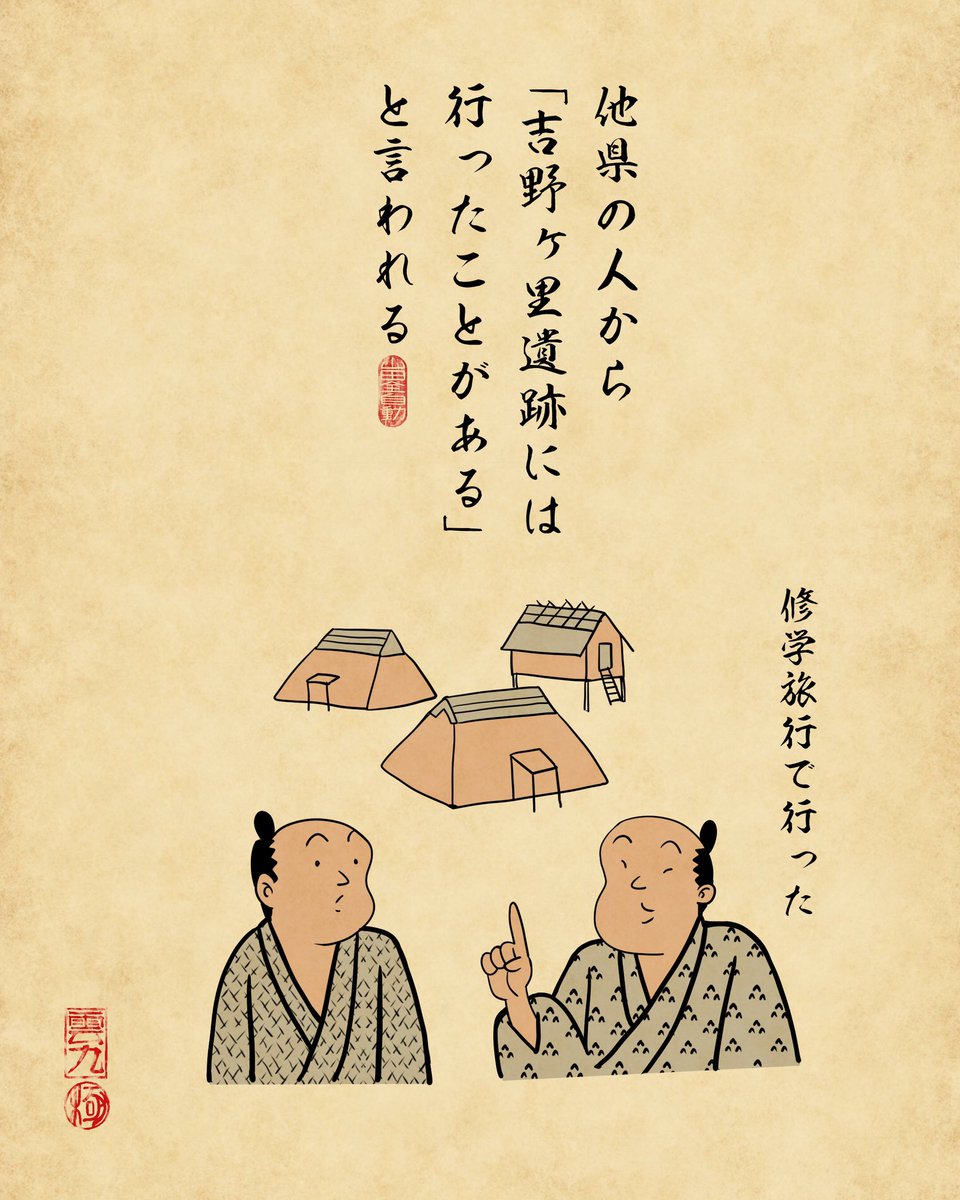 他県の人から
「吉野ヶ里遺跡には
行ったことがある」
と言われる
修学旅行で行った